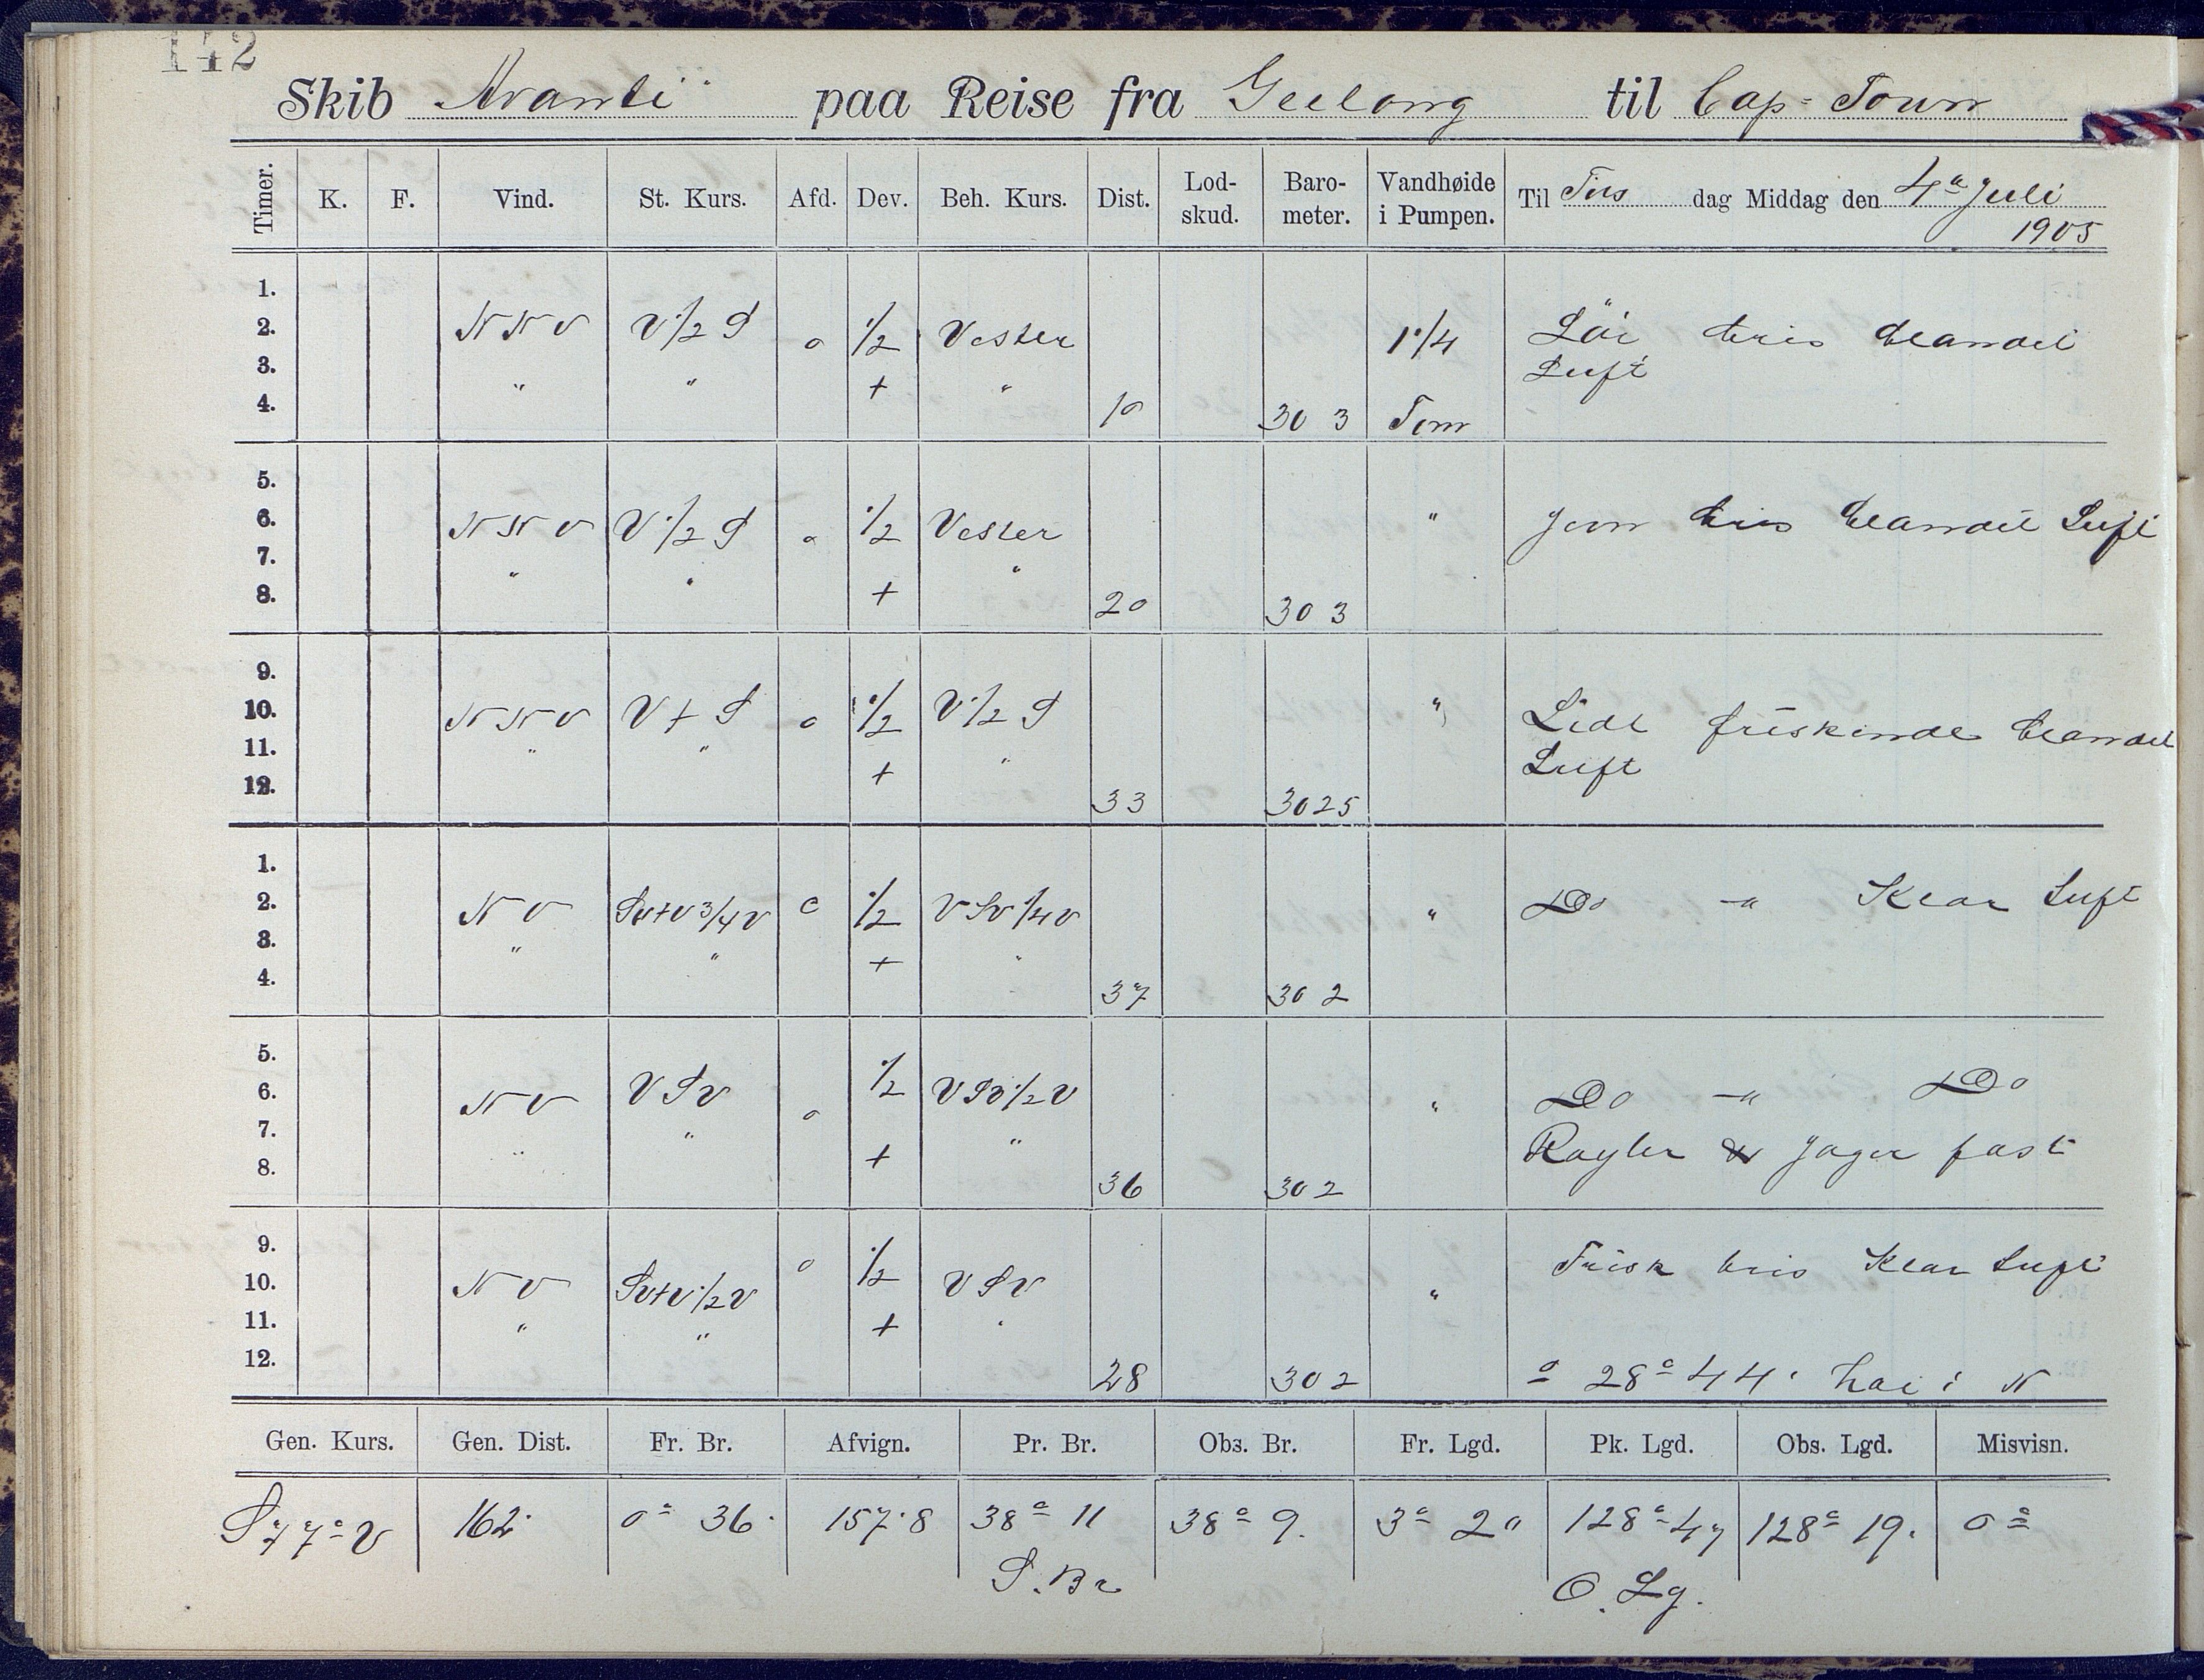 142
Skib Avanti paa Reise fra Geelong til Cap-Town
Timer. K. F. Vind. St. Kurs. Afd. Dev. Beh. Kurs. Dist. Lod-skud. Baro-meter. Vandhøide i Pumpen. Til Tirs dag Middag den 4de Juli
1905
1.
2. NNV V 1/2 S 0 1/2 Vester 1 1/4 Löi bris blandet
3. " " + " Luft
4. 10 30 3 Tom
5.
6. NNV V 1/2 S 0 1/2 Vester " Jevn bris blandet Luft
7. " " "
8. + 20 30 3
9.
10. NNV V t S 0 1/2 V 1/2 S " Lidt friskende blandet
11. " " + " Luft
12. 33 3025
1.
2. NV SVtV 3/4 V 0 1/2 VSV 1/4 V " Do -" Klar Luft
3. " " + "
4. 37 30 2
5.
6. NV VSV 0 1/2 VSV 1/2 V " Do -" Do
7. " " + " Røyler Jager fast
8. 36 30 2
9.
10. NV SVtV 1/2 V 0 1/2 VSV " Frisk bris Klar Luft
11. " " + "
12. 28 30 2 28° 44'
Gen. Kurs. Gen. Dist. Fr. Br. Afvign. Pr. Br. Obs. Br. Fr. Lgd. Pk. Lgd. Obs. Lgd. Misvisn.
S 77° V 162 0° 36 157.8 38° 11 38° 9. 3° 20 128° 47 128° 19. 0°
S. Br O. Lg.